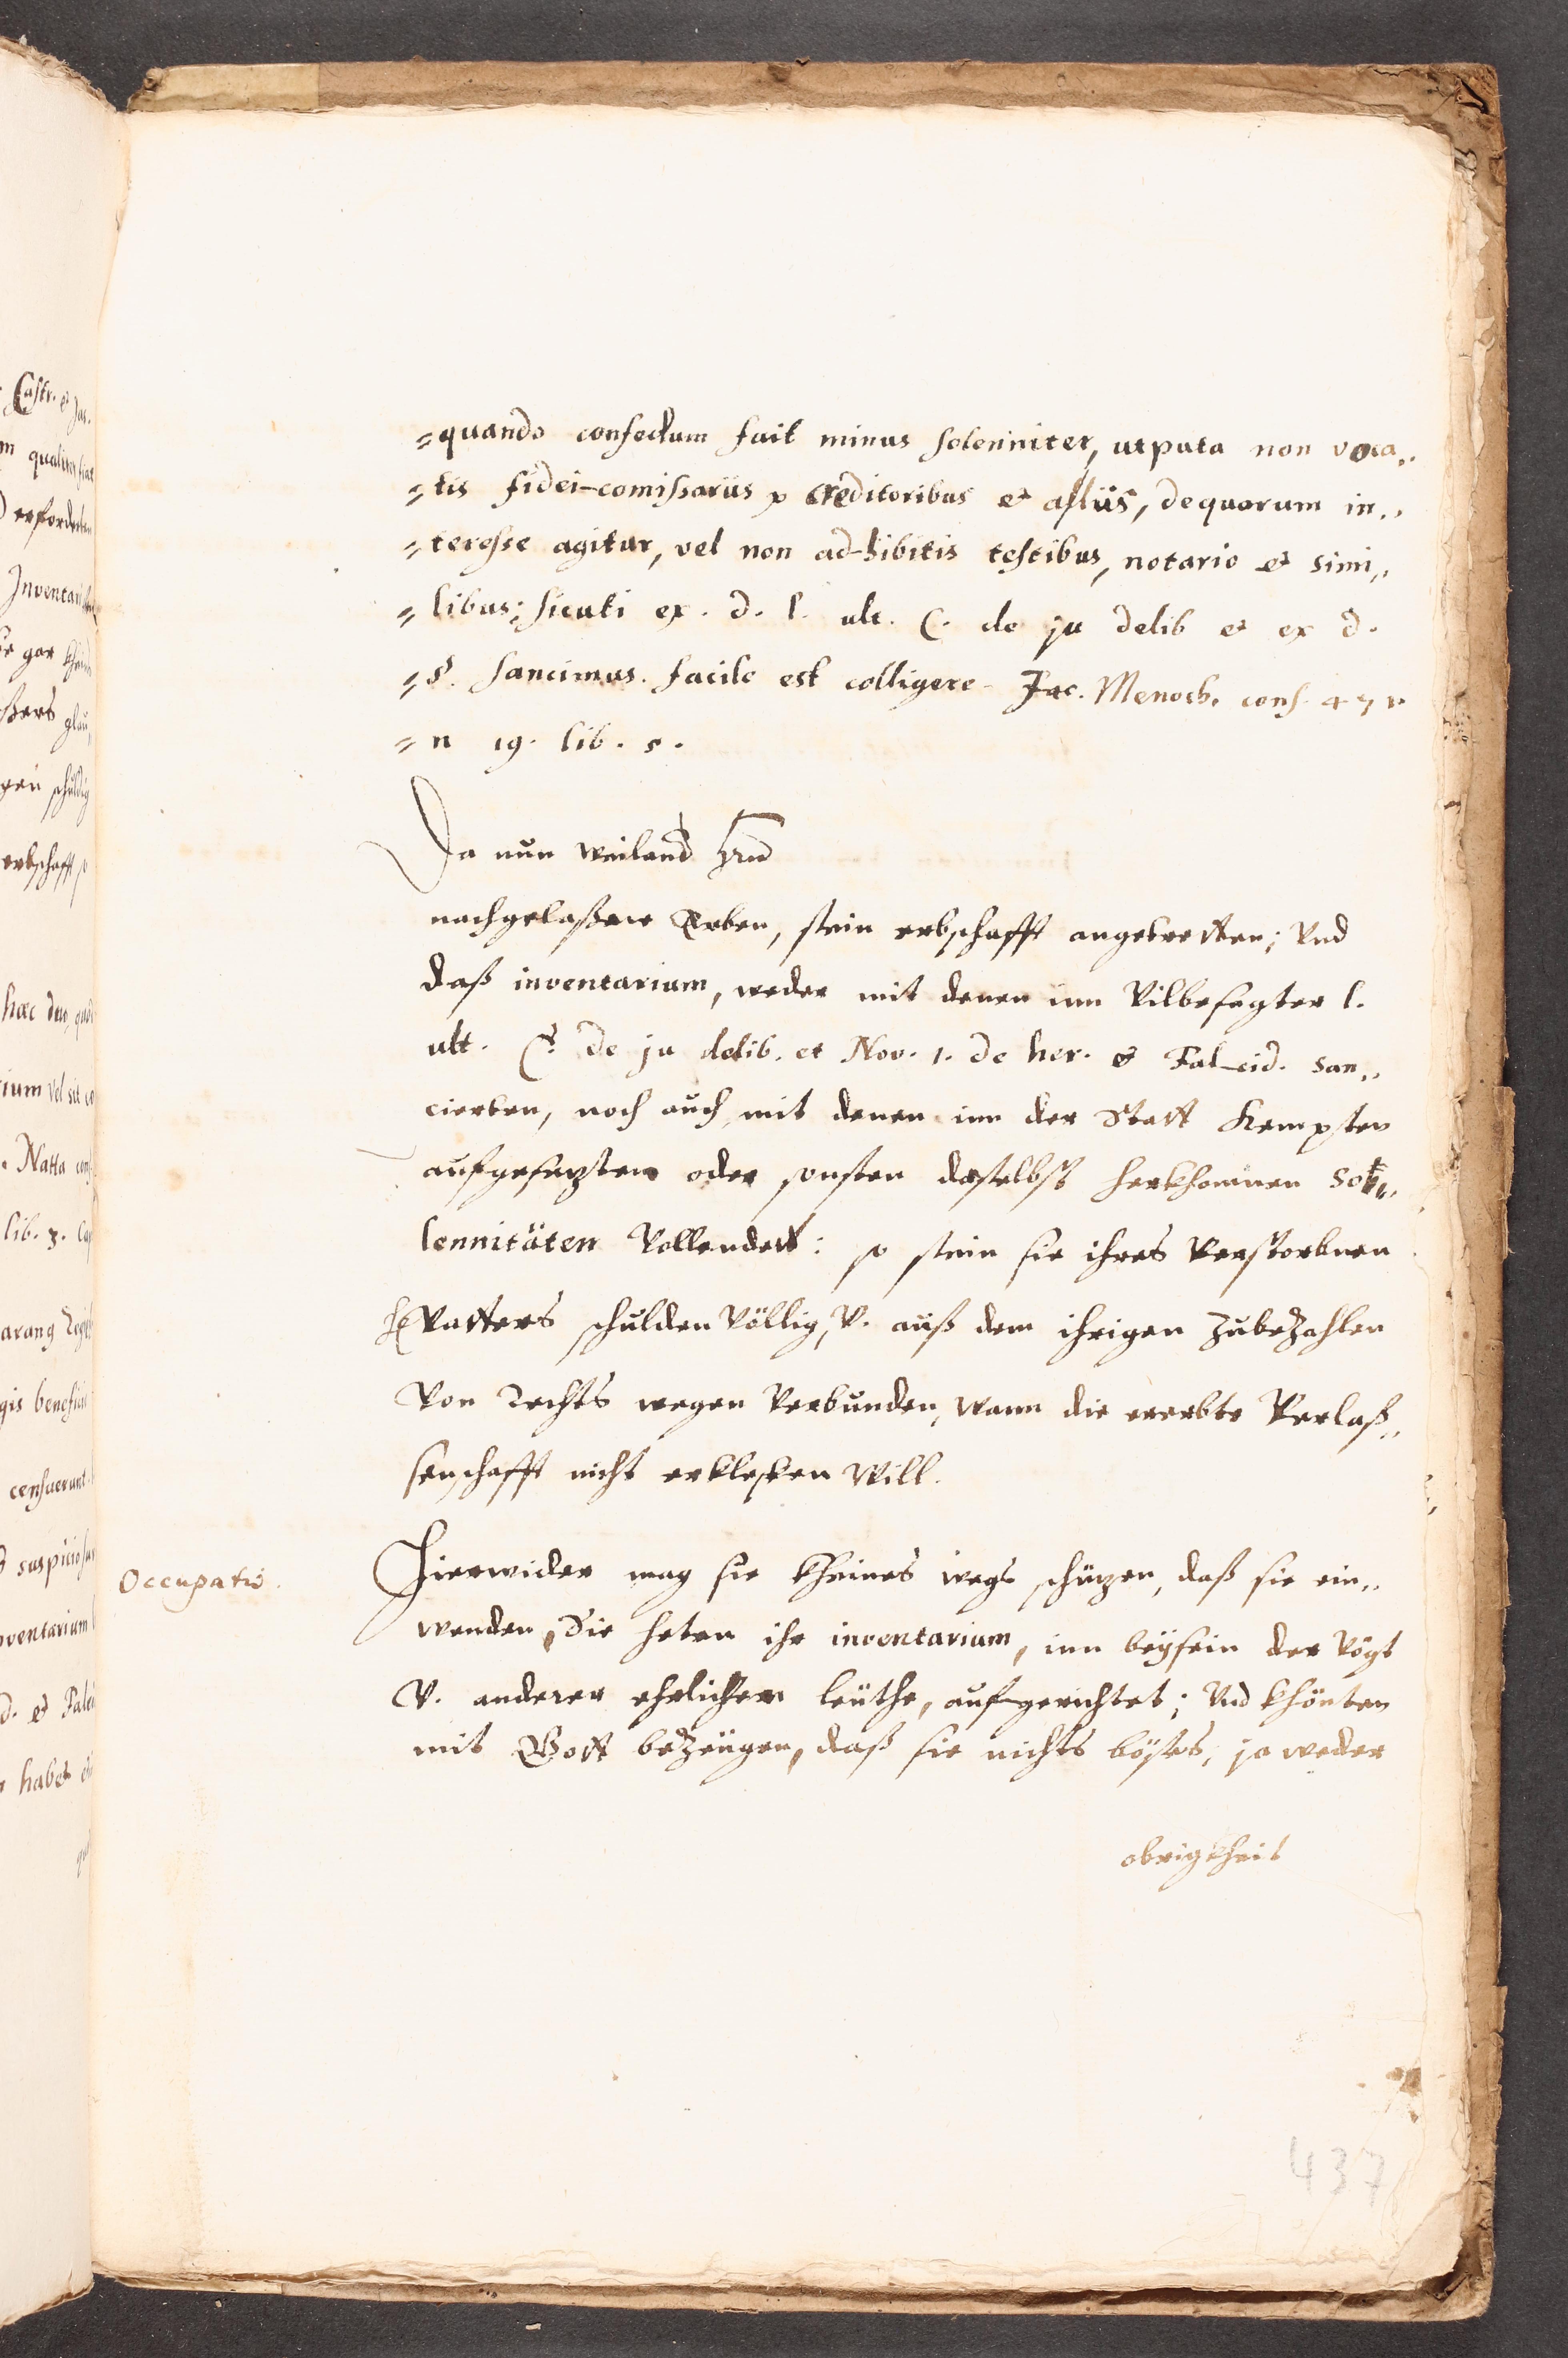 =quando confectum fuit minus solenniter, utputa non voca„
=tis fidei-comissariis creditoribus et aliis, dequorum in„
=teresse agitur, vel non ad-hibitis testibus, notario et simi„
=libus; sicuti ex. d. l. ult. C. de ju delib et ex d.
=§. sancimus. facile est colligere Jac. Menoch. cons. 471
=n 19. lib. 5.
Da nun weiland
nachgelaßene Erben, sein erbschafft angetretten; vnd
daß inventarium, weder mit denen inn vilbesagter l.
ult. C. de ju delib. et Nov. 1. de her. et Fal-cid. san„
cierten, noch auch mit denen inn der Statt Kempten
aufgesezten oder sonsten daselbst herkhomnen sol„
lennitäten vollendet: so sein sie ihres verstorbnen
Vatters schulden völlig, v. auß dem ihrigen zubezahlen
von Rechts wegen verbunden, wann die ererbte Verlaß„
senschafft nicht erklecken will.
Occupatio.
Hierwider mag sie kheines wegs schüzen, daß sie ein„
wenden, Sie heten ihr inventarium, inn beysein der Vögt
v. anderer ehrlicher leüthe, auf-gerichtet; vnd khönten
mit Gott bezeügen, daß sie nichts böses, ja weder
obrigkheit
437
Castr. et Jas.
erforderten
gar
schuldig
erbschafft
haec duo,
ium vel sit
Natta cons
lib. 3.
gis benefici
censuerunt
suspicio
nventarium
d. et Falc
habet